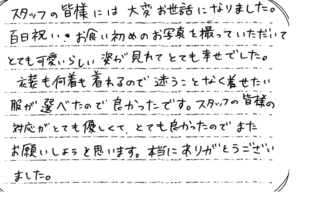 スタッフの皆様には大変お世話になりました。
百日祝い・お食い初めのお写真を撮っていただいて
とても可愛いらしい姿が見れてとても幸せでした。
衣装も何着も着れるので迷うことなく着せたい
服が選べたので良かったです。スタッフの皆様の
対応がとても優しくて、とても良かったのでまた
お願いしようと思います。本当にありがとうござい
ました。